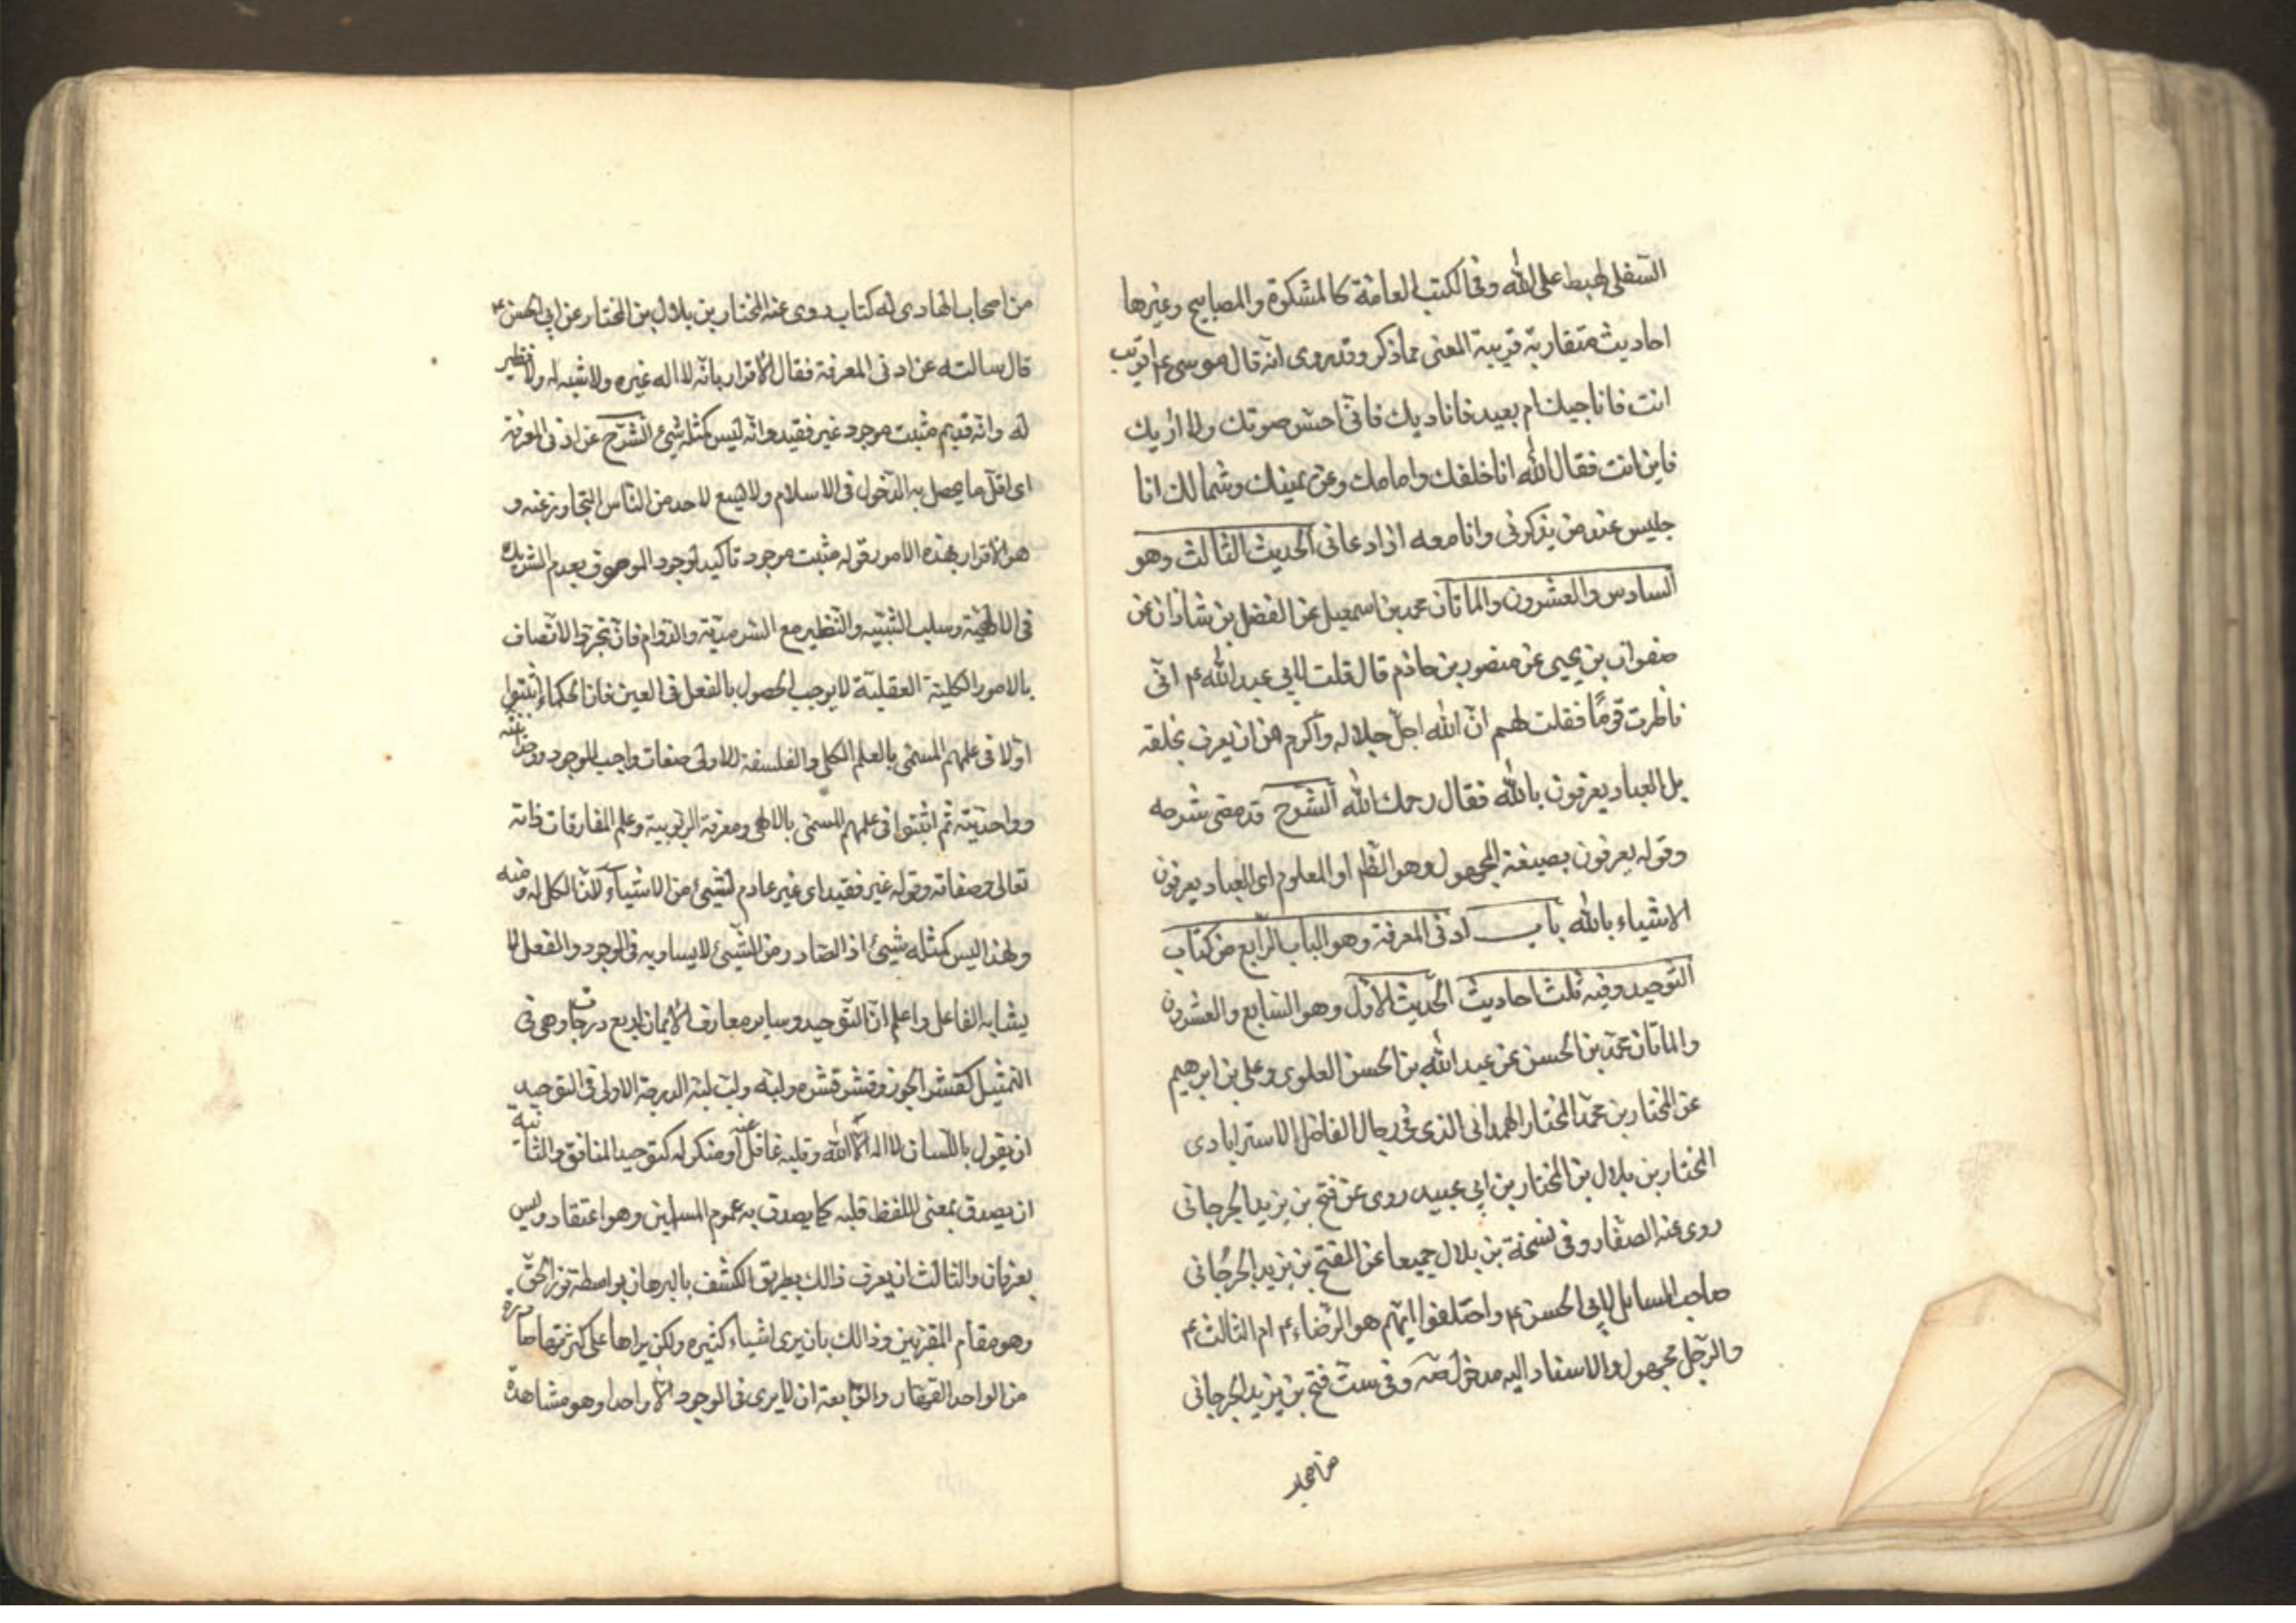 السفلى لهبط على الله وفى الكتب العامة كالمشكوة والمصابيح وغيرها
احاديث متقاربة قريبة المعنى مما ذكر وقد روى انه قال موسى ع اقريب
انت فاناجيك ام بعيد فاناديك فانى احس صوتك ولا اريك
فاين انت فقال الله انا خلفك وامامك وعن يمينك وشمالك انا
جليس عند من يذكرنى وانا معه اذا دعانى الحديث الثالث وهو
السادس والعشرون والماتان محمد بن اسمعيل عن الفضل بن شاذان عن
صفوان بن يحيى عن منصور بن حازم قال قلت لابى عبد الله ع انى
ناظرت قومًا فقلت لهم ان الله اجل جلاله واكرم من ان يعرف بخلقه
بل العباد يعرفون بالله فقال رحمك الله الشرح قد مضى شرحه
وقوله يعرفون بصيغة المجهول وهو الظ او المعلوم اى العباد يعرفون
الاشياء بالله باب ادنى المعرفة وهو الباب الرابع من كتاب
التوحيد وفيه ثلث احاديث الحديث الاول وهو السابع والعشرون
والماتان محمد بن الحسن عن عبد الله بن الحسن العلوى وعلى بن ابرهيم
عن المختار بن محمد المختار الهمدانى الذى فى رجال الفاضل الاسترابادى
المختار بن بلال بن المختار بن ابى عبيد روى عن فتح بن يزيد الجرجانى
روى عنه الصفار وفى نسخة بن بلال جميعا عن الفتح بن يزيد الجرجانى
صاحب المسايل لابى الحسن ع واختلفوا ايهم هو الرضاء ع ام الثالث ع
والرجل مجهول والاسناد اليه مدخول صه وفى ست فتح بن يزيد الجرجانى
من اصحاب
من اصحاب الهادى له كتاب روى عنه المختار بن بلال بن المختار عن ابى الحسن ع
قال سالته عن ادنى المعرفة فقال الاقرار بانه لا اله غيره ولا شبه له ولا نظير
له وانه قديم مثبت موجود غير فقيد وانه ليس كمثله شىء الشرح عن ادنى المعرفة
اى اقل ما يحصل به الدخول فى الاسلام ولا يسع لاحد من الناس التجاوز عنه و
هو الاقرار بهذه الامور قوله مثبت موجود تاكيد لوجود الموصوف بعدم الشريك
فى الالهية وسلب الشبيه والنظير مع السرمدية والدوام فان مجرد الاتصاف
بالامور الكلية العقلية لا يوجب الحصول بالفعل فى العين فان الحكماء اثبتوا
اولا فى علمهم المسمى بالعلم الكلى والفلسفة الاولى صفات واجب الوجود ووحدانيته
وواحديته ثم اثبتوا فى علمهم المسمى بالالهى ومعرفة الربوبية وعلم المفارقات ذاته
تعالى وصفاته وقوله غير فقيد اى غير عادم لشيئ من الاشياء لان الكل له ومنه
ولهذا ليس كمثله شيئ اذ الصادر من الشيئ لا يساويه فى الوجود والمفعل لا
يشابه الفاعل واعلم ان التوحيد وساير معارف الايمان اربع درجات وهى فى
التمثيل كقشر الجوز وقشر قشره ولبه ولب لبه الدرجة الاولى فى التوحيد
ان يقول باللسان لا اله الا الله وقلبه غافل عنه او منكر له كتوحيد المنافق والثانية
ان يصدق بمعنى اللفظ قلبه كما يصدق به عموم المسلمين وهو اعتقاد وليس
بعرفان والثالث ان يعرف ذالك بطريق الكشف بالبرهان بواسطة نور الحق
وهو مقام المقربين وذالك بان يرى اشياء كثيره ولكن يراها على كثرتها صادرة
من الواحد القهار والرابعة ان لا يرى فى الوجود الا واحدا وهو مشاهدة